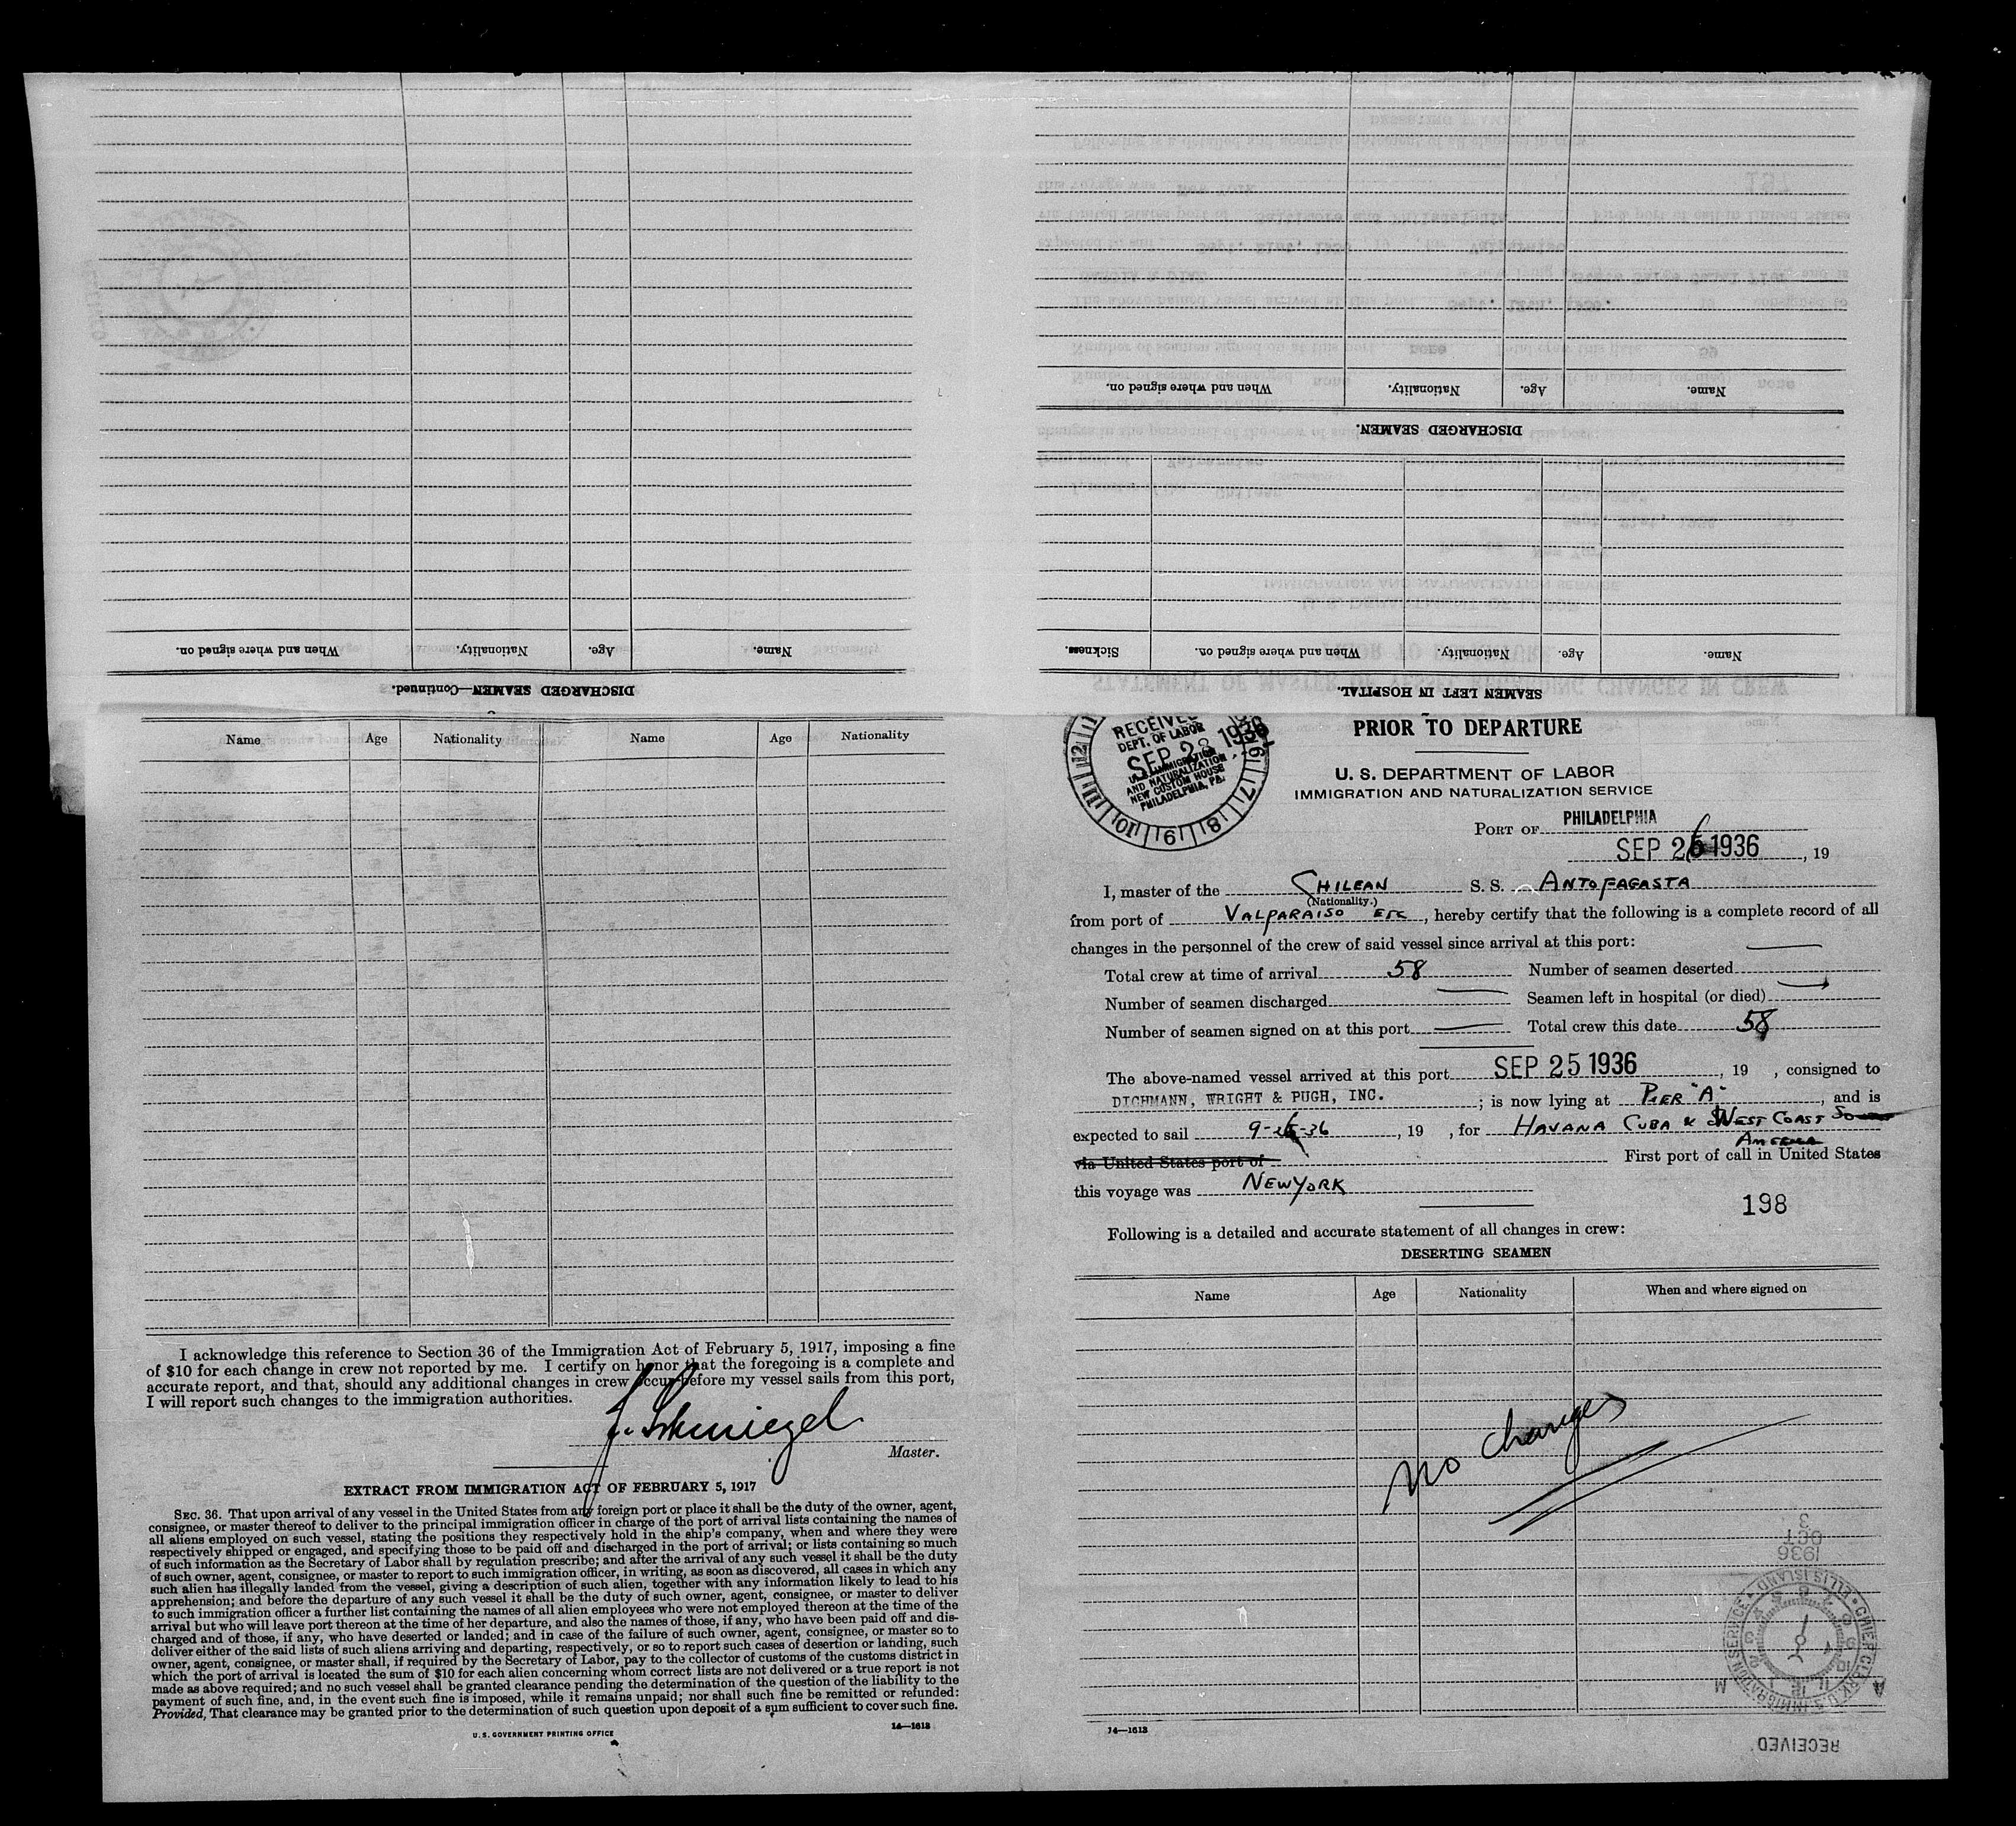 DISCHARGED SEAMEN.
Name. Age. Nationality. When and where signed on.
SEAMEN LEFT IN HOSPITAL.
Name. Age. Nationality. When and where signed on. Sickness.
DISCHARGED SEAMEN—Continued.
Name. Age. Nationality. When and where signed on.
Name Age Nationality Name Age Nationality
I acknowledge this reference to Section 36 of the Immigration Act of February 5, 1917, imposing a fine
of $10 for each change in crew not reported by me. I certify on honor that the foregoing is a complete and
accurate report, and that, should any additional changes in crew occur before my vessel sails from this port,
I will report such changes to the immigration authorities.
Master.
EXTRACT FROM IMMIGRATION ACT OF FEBRUARY 5, 1917
SEC. 36. That upon arrival of any vessel in the United States from any foreign port or place it shall be the duty of the owner, agent,
consignee, or master thereof to deliver to the principal immigration officer in charge of the port of arrival lists containing the names of
all aliens employed on such vessel, stating the positions they respectively hold in the ship's company, when and where they were
respectively shipped or engaged, and specifying those to be paid off and discharged in the port of arrival; or lists containing so much
of such information as the Secretary of Labor shall by regulation prescribe; and after the arrival of any such vessel it shall be the duty
of such owner, agent, consignee, or master to report to such immigration officer, in writing, as soon as discovered, all cases in which any
such alien has illegally landed from the vessel, giving a description of such alien, together with any information likely to lead to his
apprehension; and before the departure of any such vessel it shall be the duty of such owner, agent, consignee, or master to deliver
to such immigration officer a further list containing the names of all alien employees who were not employed thereon at the time of the
arrival but who will leave port thereon at the time of her departure, and also the names of those, if any, who have been paid off and dis-
charged and of those, if any, who have deserted or landed; and in case of the failure of such owner, agent, consignee, or master so to
deliver either of the said lists of such aliens arriving and departing, respectively, or so to report such cases of desertion or landing, such
owner, agent, consignee, or master shall, if required by the Secretary of Labor, pay to the collector of customs of the customs district in
which the port of arrival is located the sum of $10 for each alien concerning whom correct lists are not delivered or a true report is not
made as above required; and no such vessel shall be granted clearance pending the determination of the question of the liability to the
payment of such fine, and, in the event such fine is imposed, while it remains unpaid; nor shall such fine be remitted or refunded:
Provided, That clearance may be granted prior to the determination of such question upon deposit of a sum sufficient to cover such fine.
U. S. GOVERNMENT PRINTING OFFICE 14—1613
RECEIVED
DEPT. OF LABOR
SEP 1936
U.S. IMMIGRATION
AND NATURALIZATION
NEW CUSTOM HOUSE
PHILADELPHIA, PA.
PRIOR TO DEPARTURE
U. S. DEPARTMENT OF LABOR
IMMIGRATION AND NATURALIZATION SERVICE
PORT OF PHILADELPHIA
SEP 26 1936, 19
I, master of the CHILEAN S. S. ANTOFAGASTA
(Nationality.)
from port of VALPARAISO ETC, hereby certify that the following is a complete record of all
changes in the personnel of the crew of said vessel since arrival at this port:
Total crew at time of arrival 58 Number of seamen deserted —
Number of seamen discharged — Seamen left in hospital (or died) —
Number of seamen signed on at this port — Total crew this date 58
The above-named vessel arrived at this port SEP 25 1936, 19 , consigned to
DICHMANN, WRIGHT & PUGH, INC. ; is now lying at PIER "A", and is
expected to sail 9-26-36, 19 , for HAVANA CUBA & WEST COAST So
AMERICA
via United States port of First port of call in United States
this voyage was NEW YORK
198
Following is a detailed and accurate statement of all changes in crew:
DESERTING SEAMEN
Name Age Nationality When and where signed on
No changes
14—1613
RECEIVED
CHIEF CLERK, U.S. IMMIGRATION SERVICE, ELLIS ISLAND
A M
1936
OCT
3